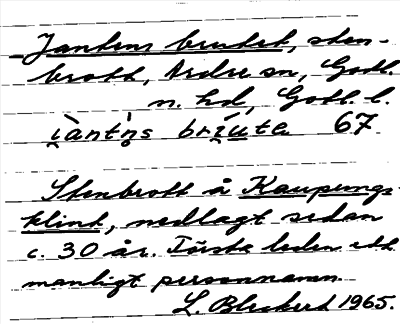 Jantens brudet, sten-
brott, Ardre sn, Gotl.
n. hd, Gotl. l.
i̯àntn̥s bri̯u̯te 67
Stenbrott å Kaupungs-
klint, nedlagt sedan
c. 30 år. Första leden ett
manligt personnamn.
L. Bleckert 1965.